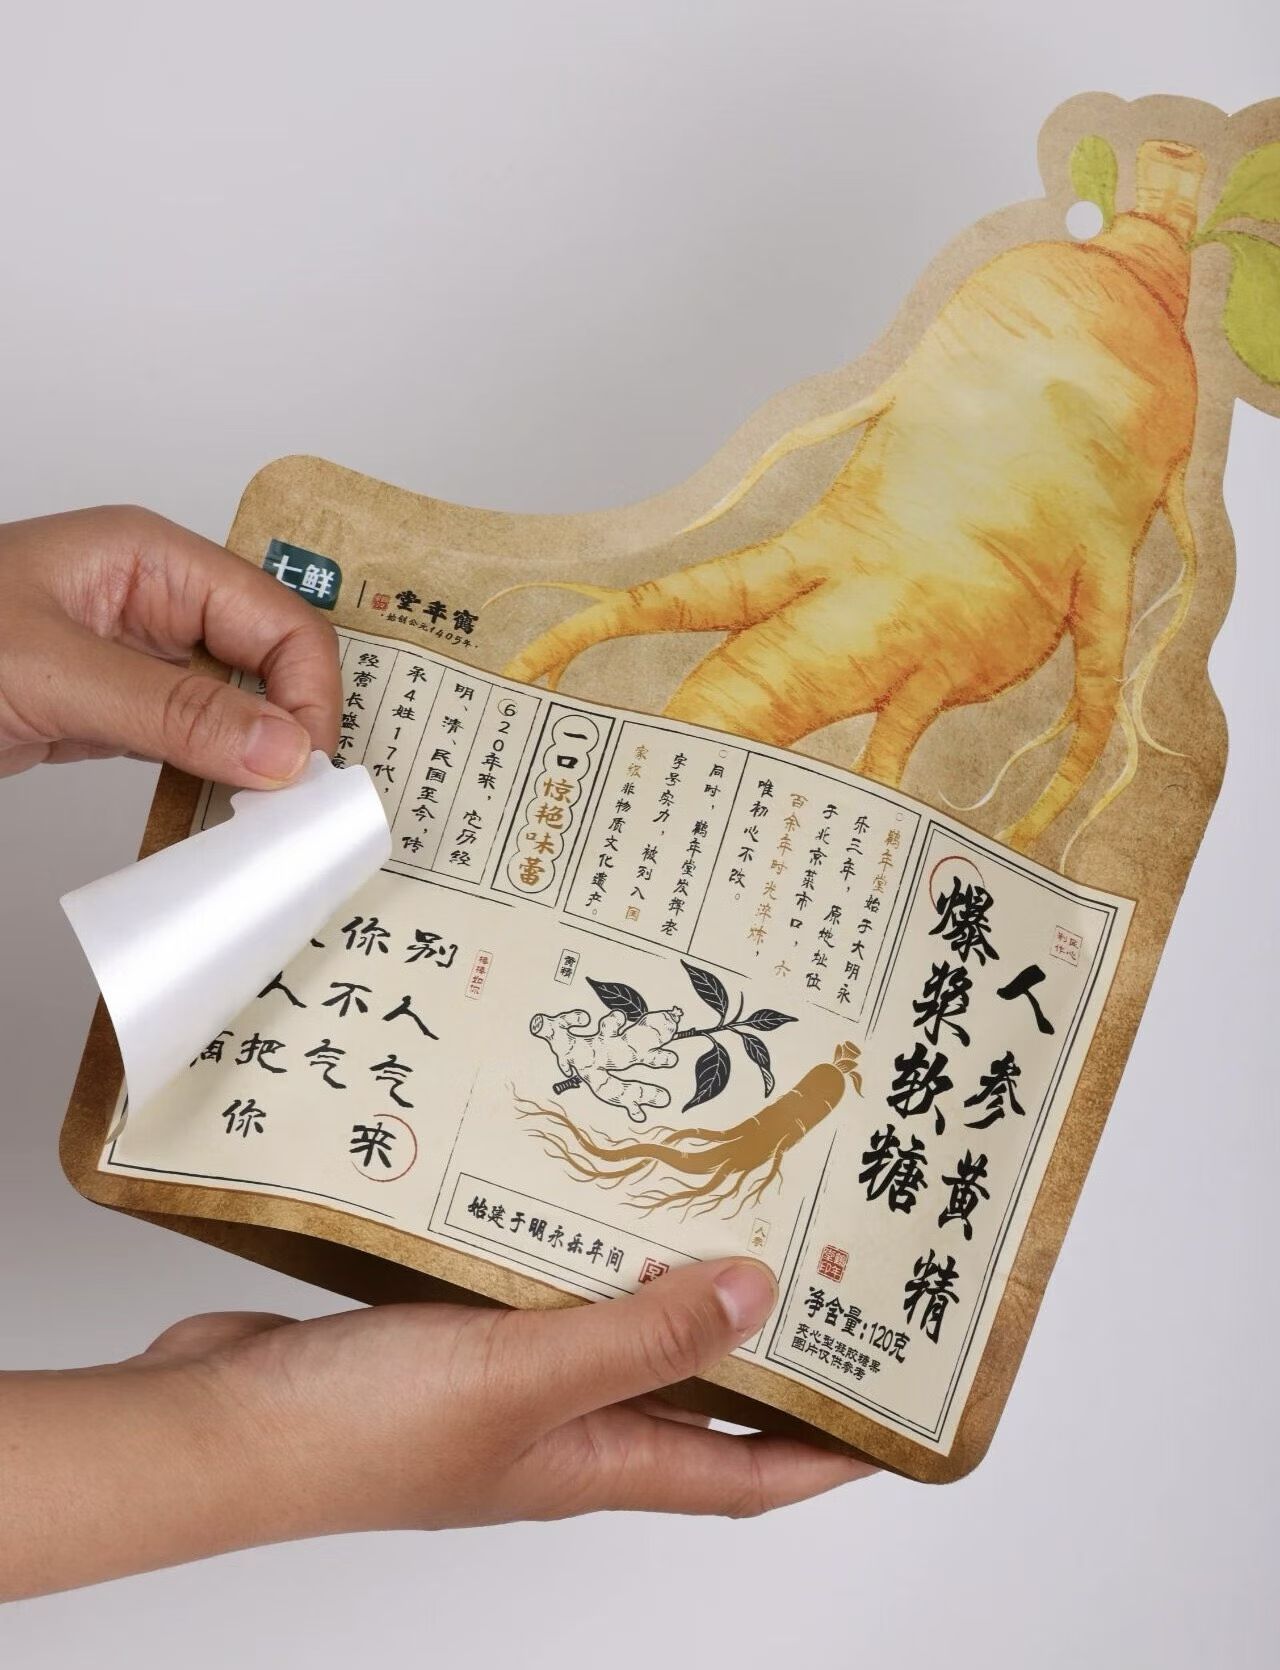 七鲜
鹤年堂
·始创公元1405年·
匠心
制作
人参黄精
爆浆软糖
鹤年
堂印
净含量:120克
夹心型凝胶糖果
图片仅供参考
鹤年堂始于大明永
乐三年，原地址位
于北京菜市口，六
百余年时光淬炼，
唯初心不改。
同时，鹤年堂发挥老
字号实力，被列入国
家级非物质文化遗产。
一口惊艳味蕾
620年来，它历经
明、清、民国至今，传
承4姓17代，
经营长盛不
黄精
人参
始建于明永乐年间
棒棒如你
别人气来
你不气
人把你